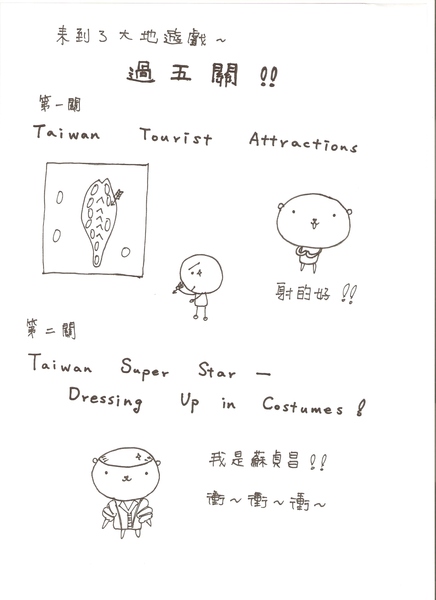 來到了大地遊戲~
過五關!!
第一關
Taiwan Tourist Attractions
射的好!!
第二關
Taiwan Super Star —
Dressing Up in Costumes!
我是蘇貞昌!!
衝~衝~衝~